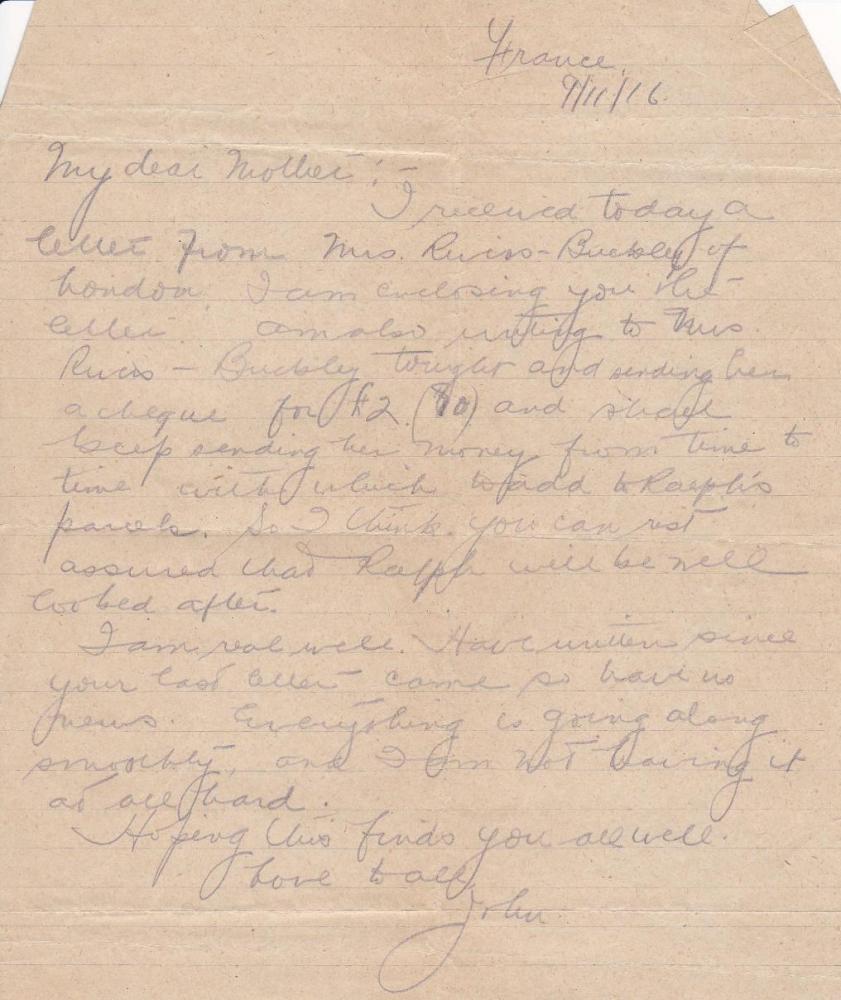 France.
9/11/16.
My dear Mother:-
I received today a
letter from Mrs. Rivis-Buckley of
London. I am enclosing you the
letter. am also writing to Mrs.
Buckley tonight and sending her
a cheque for £2 and shall
keep sending her money from time to
time with which to add to Ralph's
parcels. So I think you can rest
assured that Ralph will be well
looked after.
I am real well. Have written since
your last letter came so have no
news. Everything is going along
smoothly, and I am not having it
at all hard.
Hoping this finds you all well.
Love to all
John